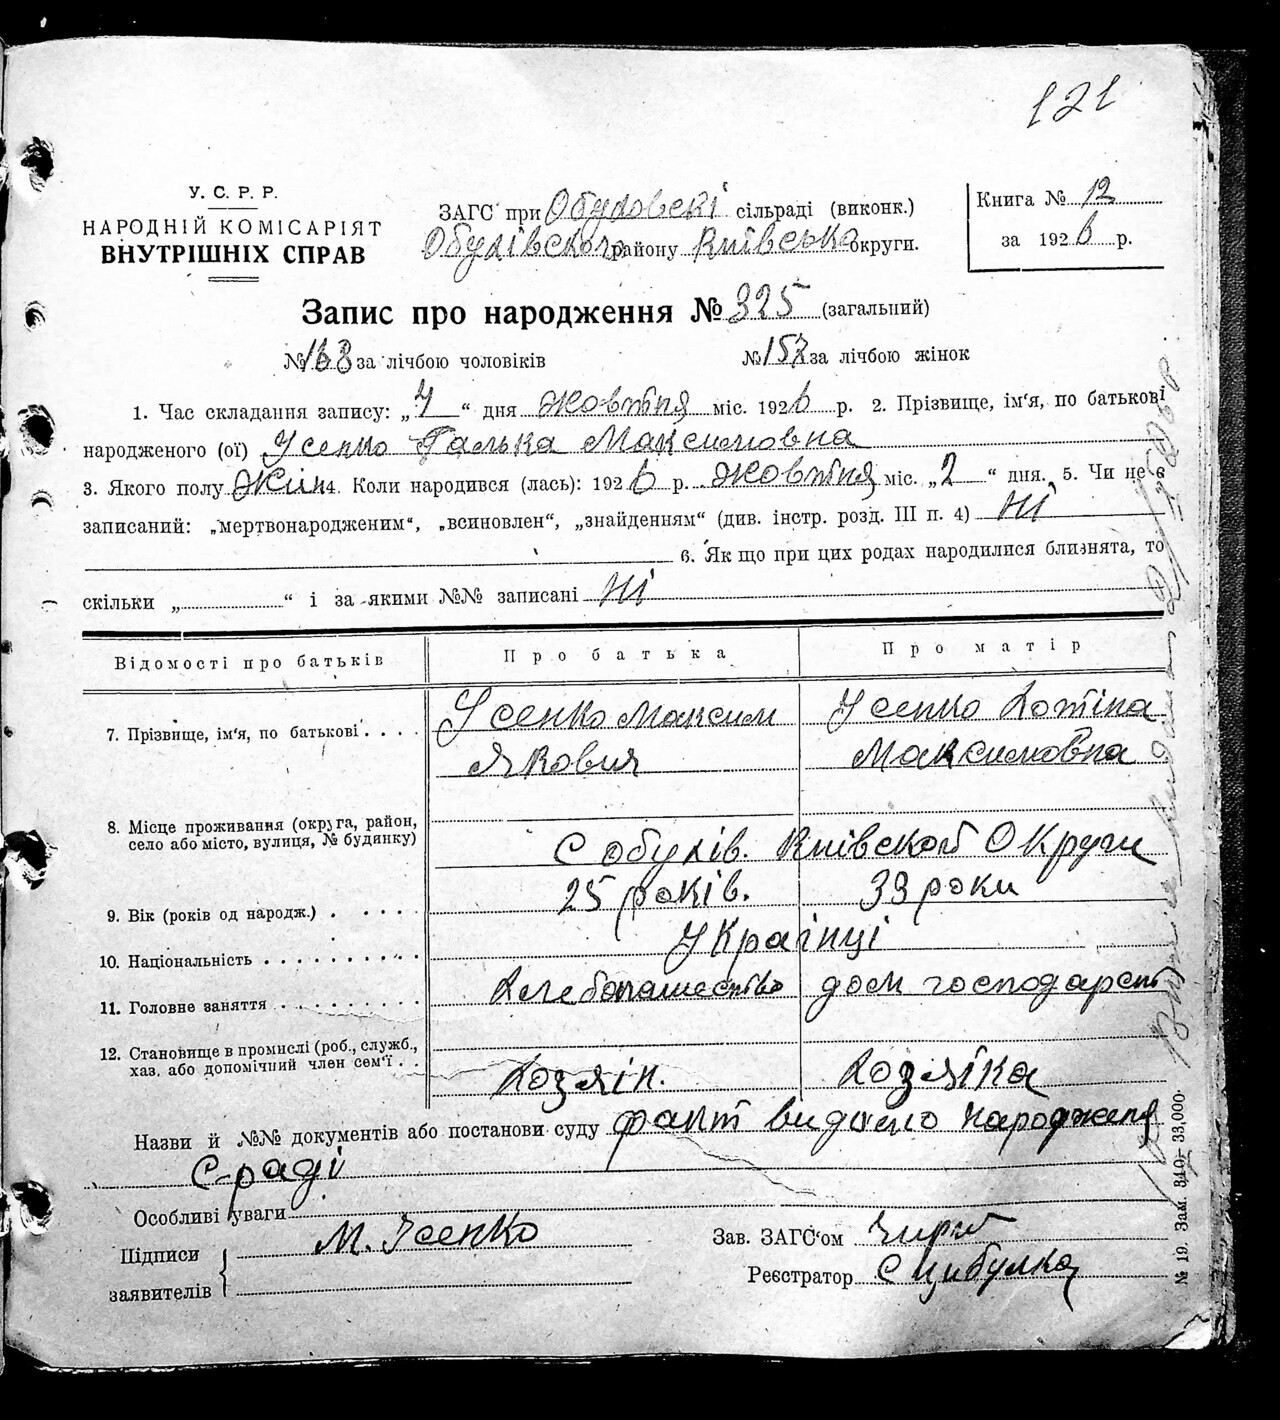 121
У. С. Р. Р.
НАРОДНІЙ КОМІСАРІЯТ
ВНУТРІШНІХ СПРАВ
ЗАГС при Обуховскі сільраді (виконк.)
Обухівского району Київська округи.
Книга № 12
за 1926 р.
Запис про народження № 325 (загальний)
№ 168 за лічбою чоловіків № 157 за лічбою жінок
1. Час складання запису: „4“ дня Жовтня міс. 1926 р. 2. Прізвище, ім'я, по батькові
народженого (ої) Усенко Галька Максимовна
3. Якого полу Жин 4. Коли народився (лась): 1926 р. Жовтня міс. „2“ дня. 5. Чи не є
записаний: „мертвонародженим“, „всиновлен“, „знайденням“ (див. інстр. розд. III п. 4) Ні
6. Як що при цих родах народилися близнята, то
скільки „ “ і за якими №№ записані Ні
Відомості про батьків Про батька Про матір
7. Прізвище, ім'я, по батькові . . . . Усенко Максим Усенко Хотіна
Якович Максимовна
8. Місце проживання (округа, район,
село або місто, вулиця, № будинку) С Обухів. Київской Округи
9. Вік (років од народж.) . . . . . 25 років. 33 роки
10. Національність . . . . . . . . . . Українці
11. Головне заняття . . . . . . . . . Хлебопашество дом господарст
12. Становище в промислі (роб., служб.,
хаз. або допомічний член сем'ї . . Хозяін. Хозяїка
Назви й №№ документів або постанови суду факт видано народження
С-раді
Особливі уваги
Підписи
заявителів М. Усенко
Зав. ЗАГС'ом
Реєстратор С Цибулка
№ 19. Зам. 840—33,000.